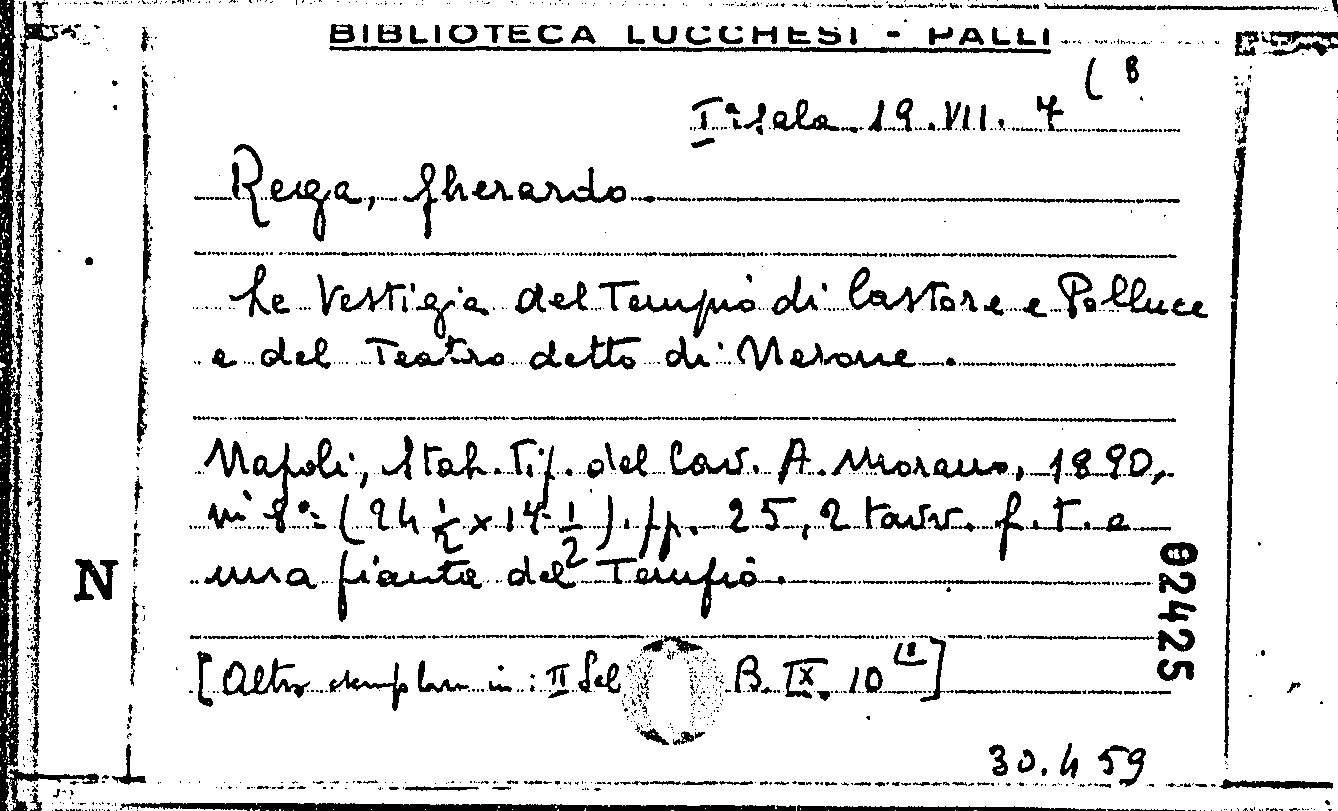 BIBLIOTECA LUCCHESI - PALLI
Iª Sala. 19. VII. 7 (8
Rega, Gherardo.
Le Vestigia del Tempio di Castore e Polluce
e del Teatro detto di Nerone.
Napoli, Stab. Tip. del Cav. A. Morano, 1890,
in 8°: (24 1/2 x 14 1/2). pp. 25, 2 tavv. f. t. e
una pianta del Tempio.
N
02425
[Altro esemplare in: II Sal B. IX. 10 (8]
30.4 59